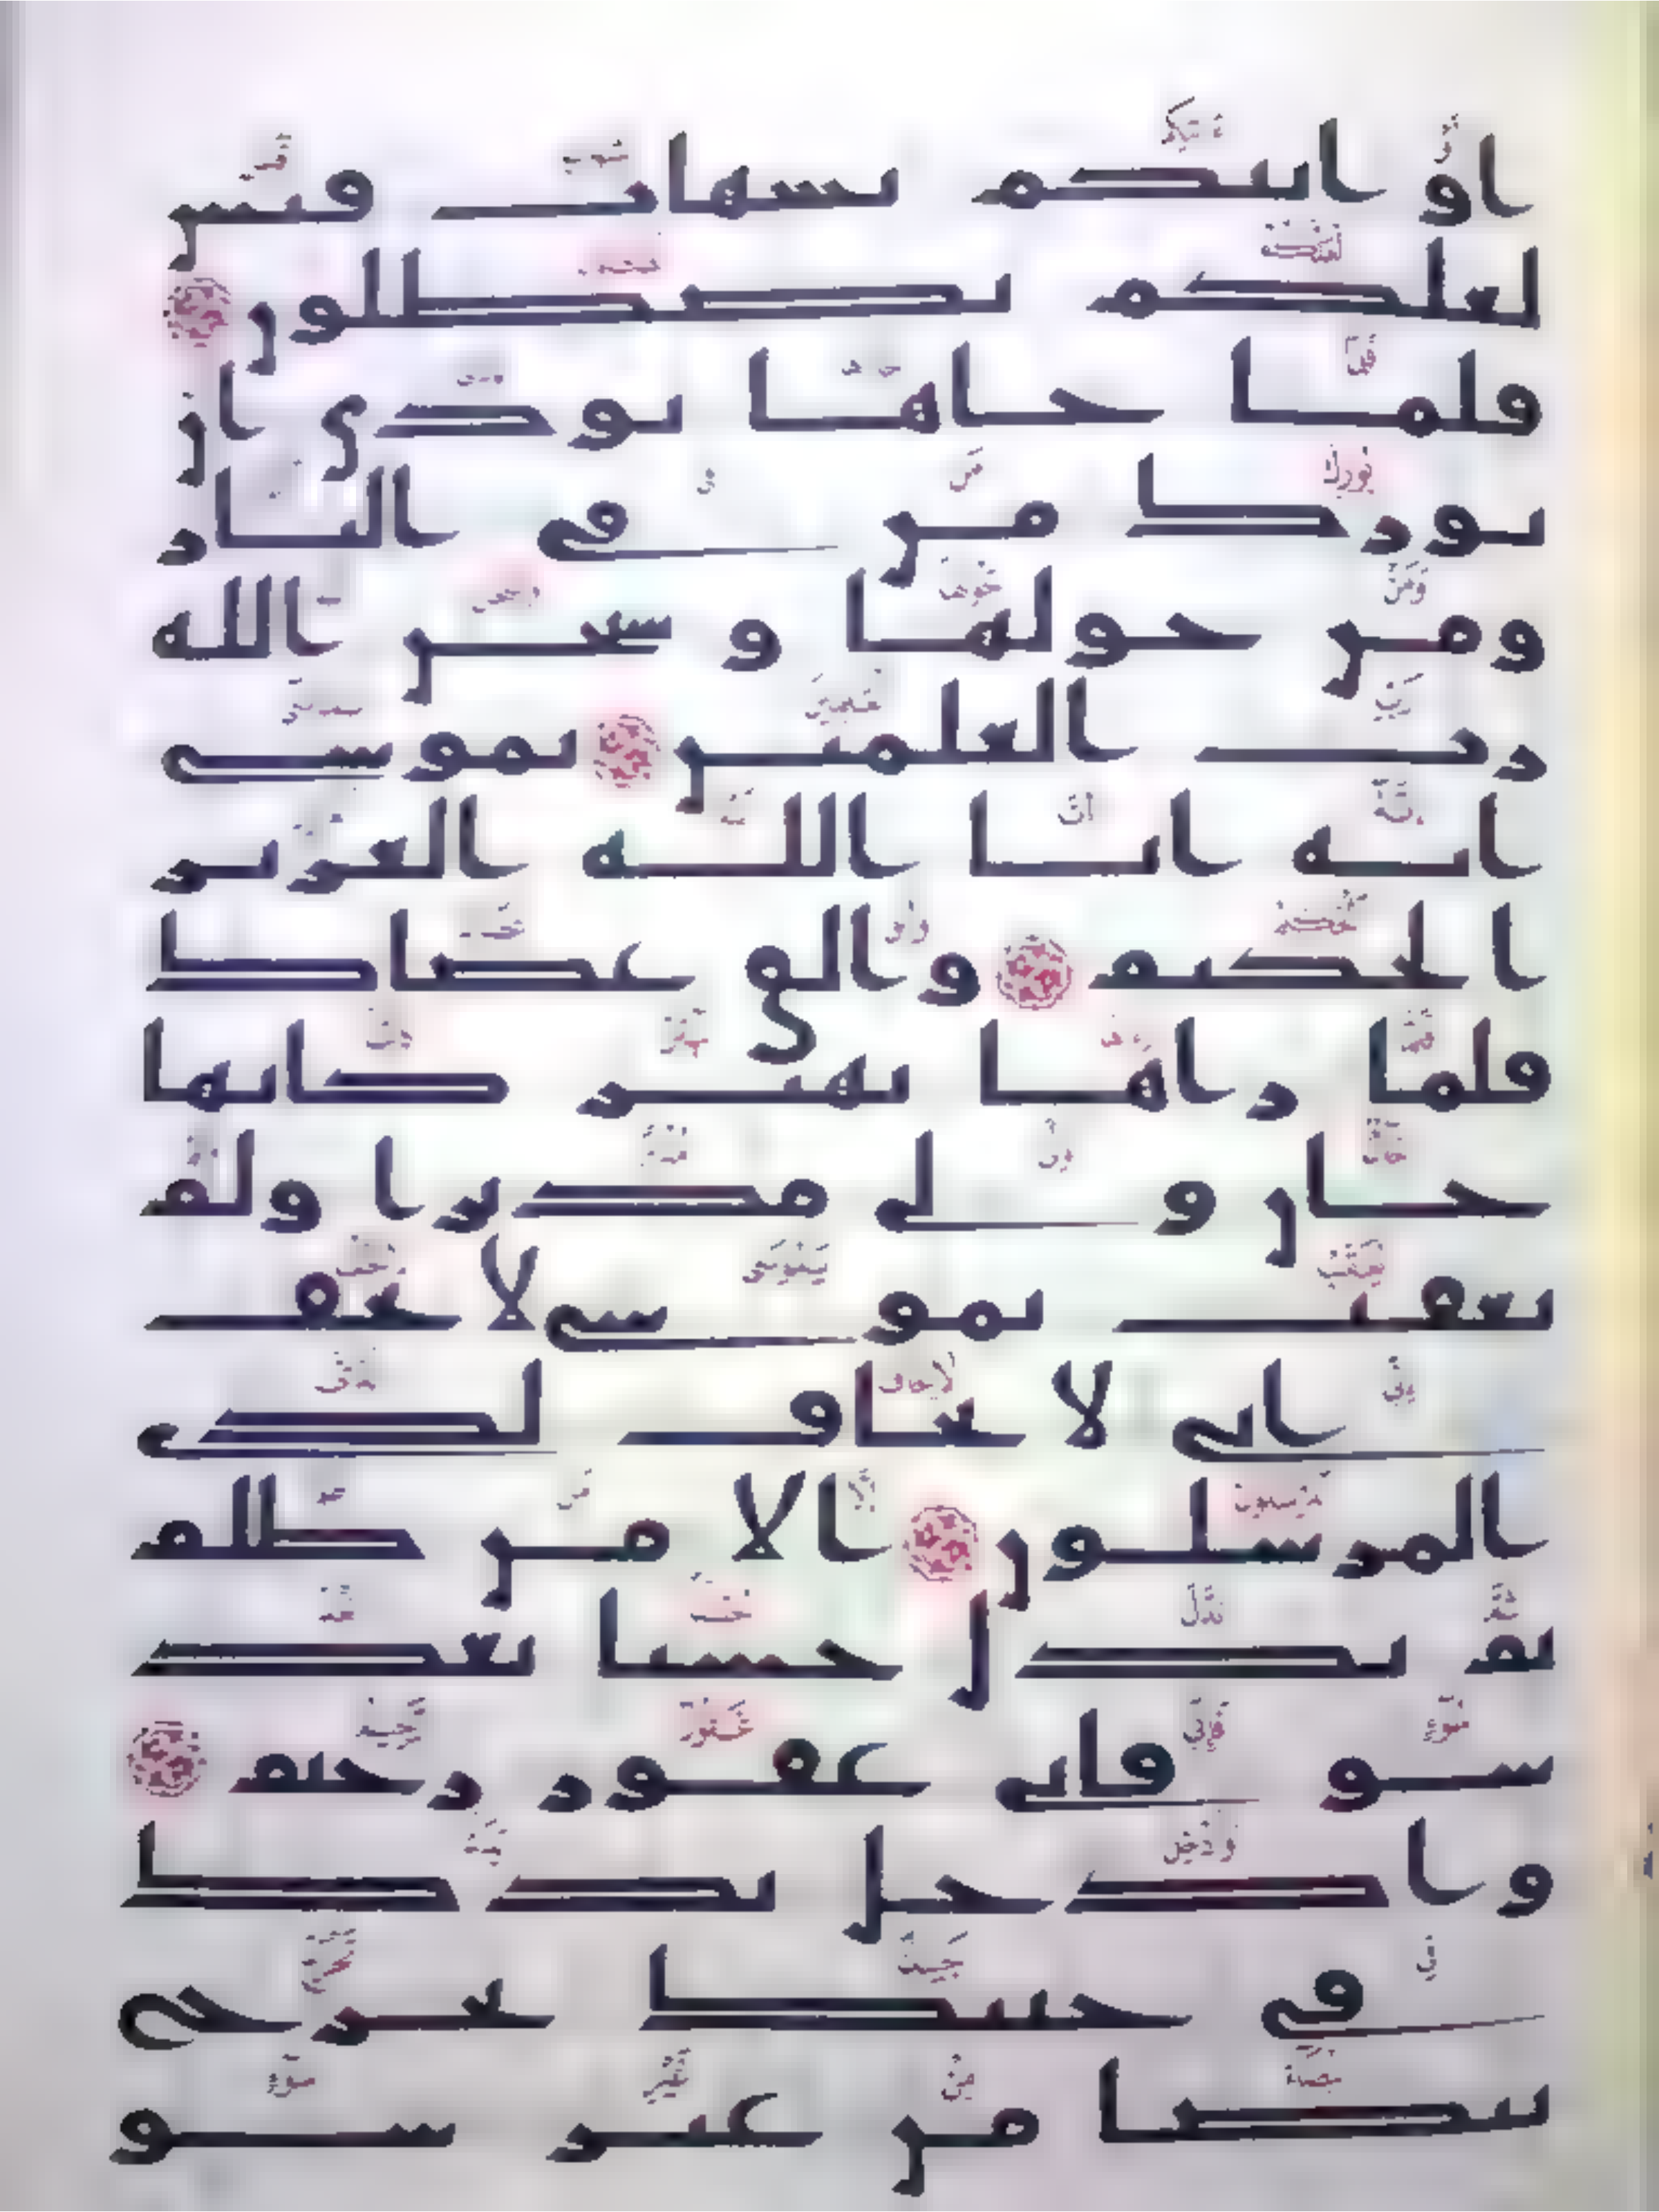 او اتيكم بشهاب قبس
لعلكم تصطلون
فلما جاها نودي ان
بورك من في النار
ومن حولها و سبحن الله
رب العلمين يموسى
انه انا الله العزيز
الحكيم والق عصاك
فلما راها تهتز كانها
جان ولى مدبرا ولم
يعقب يموسى لا تخف
اني لا يخاف لدي
المرسلون الا من ظلم
ثم بدل حسنا بعد
سو فاني غفور رحيم
وادخل يدك
في جيبك تخرج
بيضا من غير سو